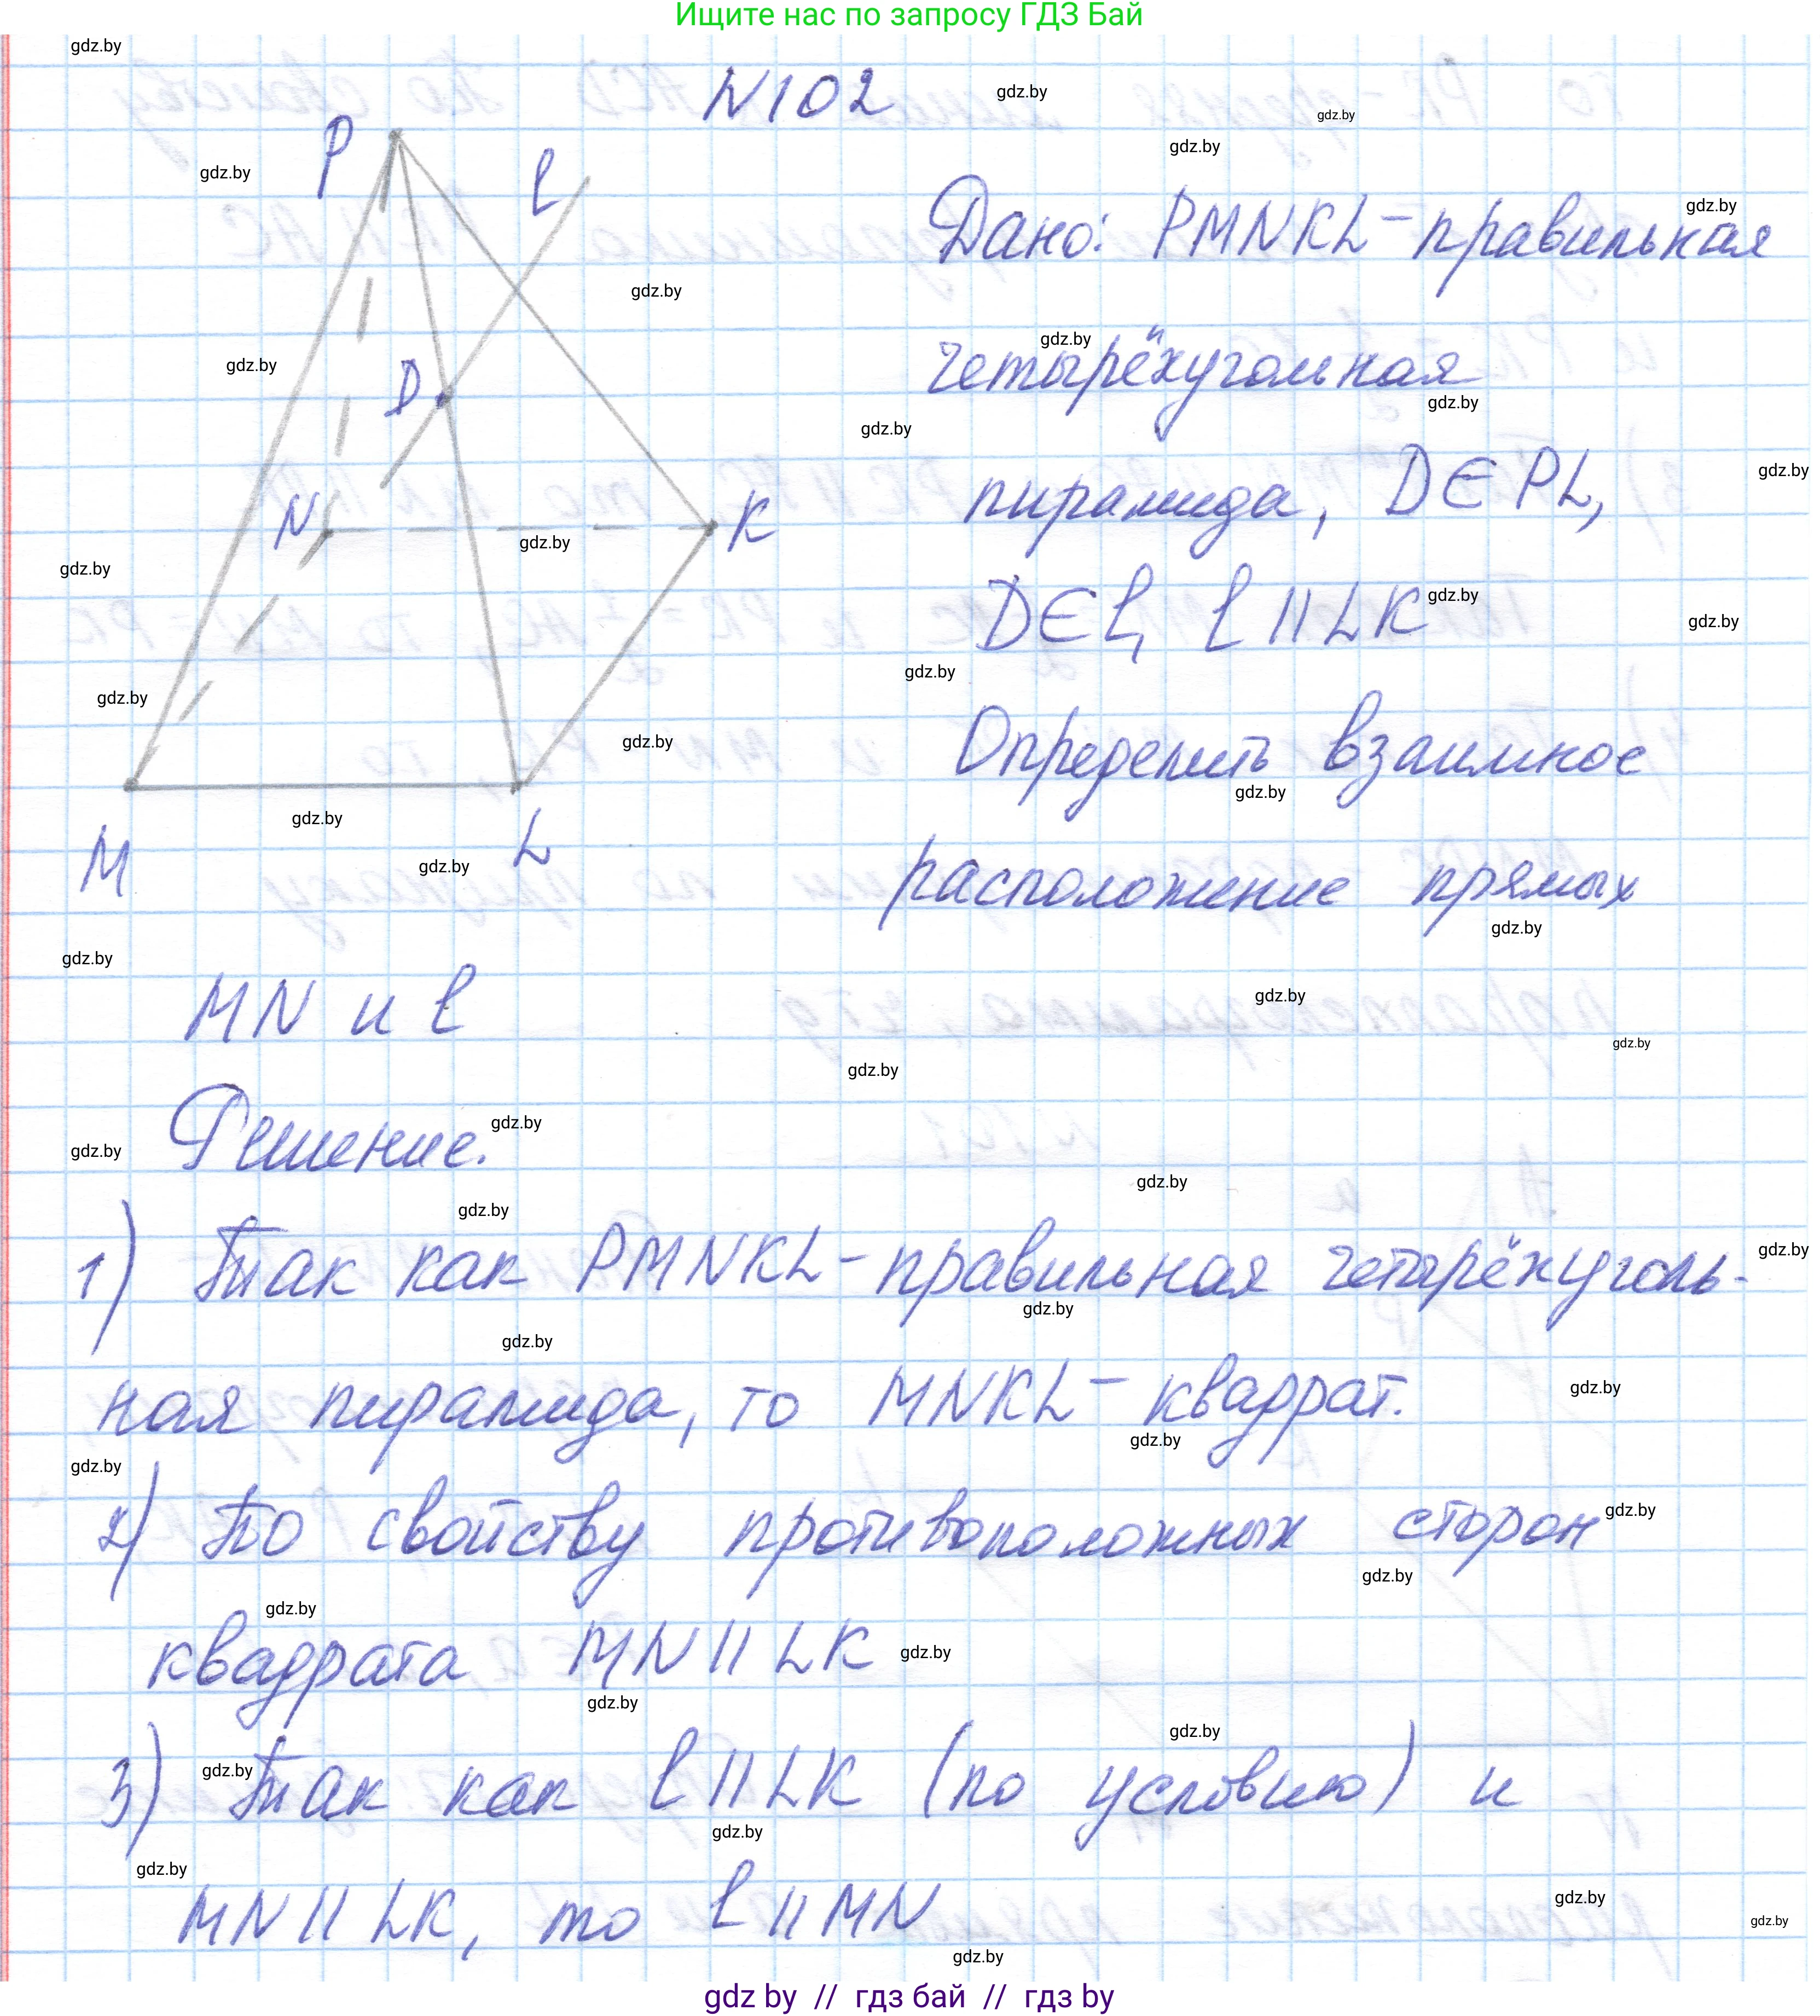 Ищите нас по запросу ГДЗ Бай
N102
P
l
D
N
K
M
L
Дано: PMNKL - правильная
четырёхугольная
пирамида, D∈PL,
D∈l, l || LK
Определить взаимное
расположение прямых
MN и l
Решение.
1) Так как PMNKL - правильная четырёхуголь-
ная пирамида, то MNKL - квадрат.
2) По свойству противоположных сторон
квадрата MN || LK
3) Так как l || LK (по условию) и
MN || LK, то l || MN
gdz by // гдз бай // гдз by